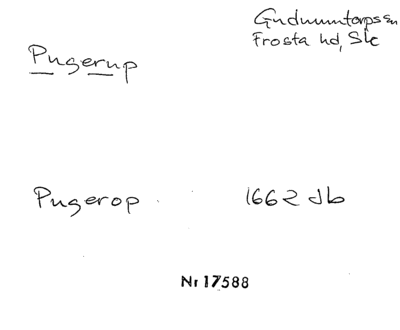 Gudmuntorps sn
Frosta hd, Sk
Pugerup
Pugerop 1662 Jb
Nr 17588